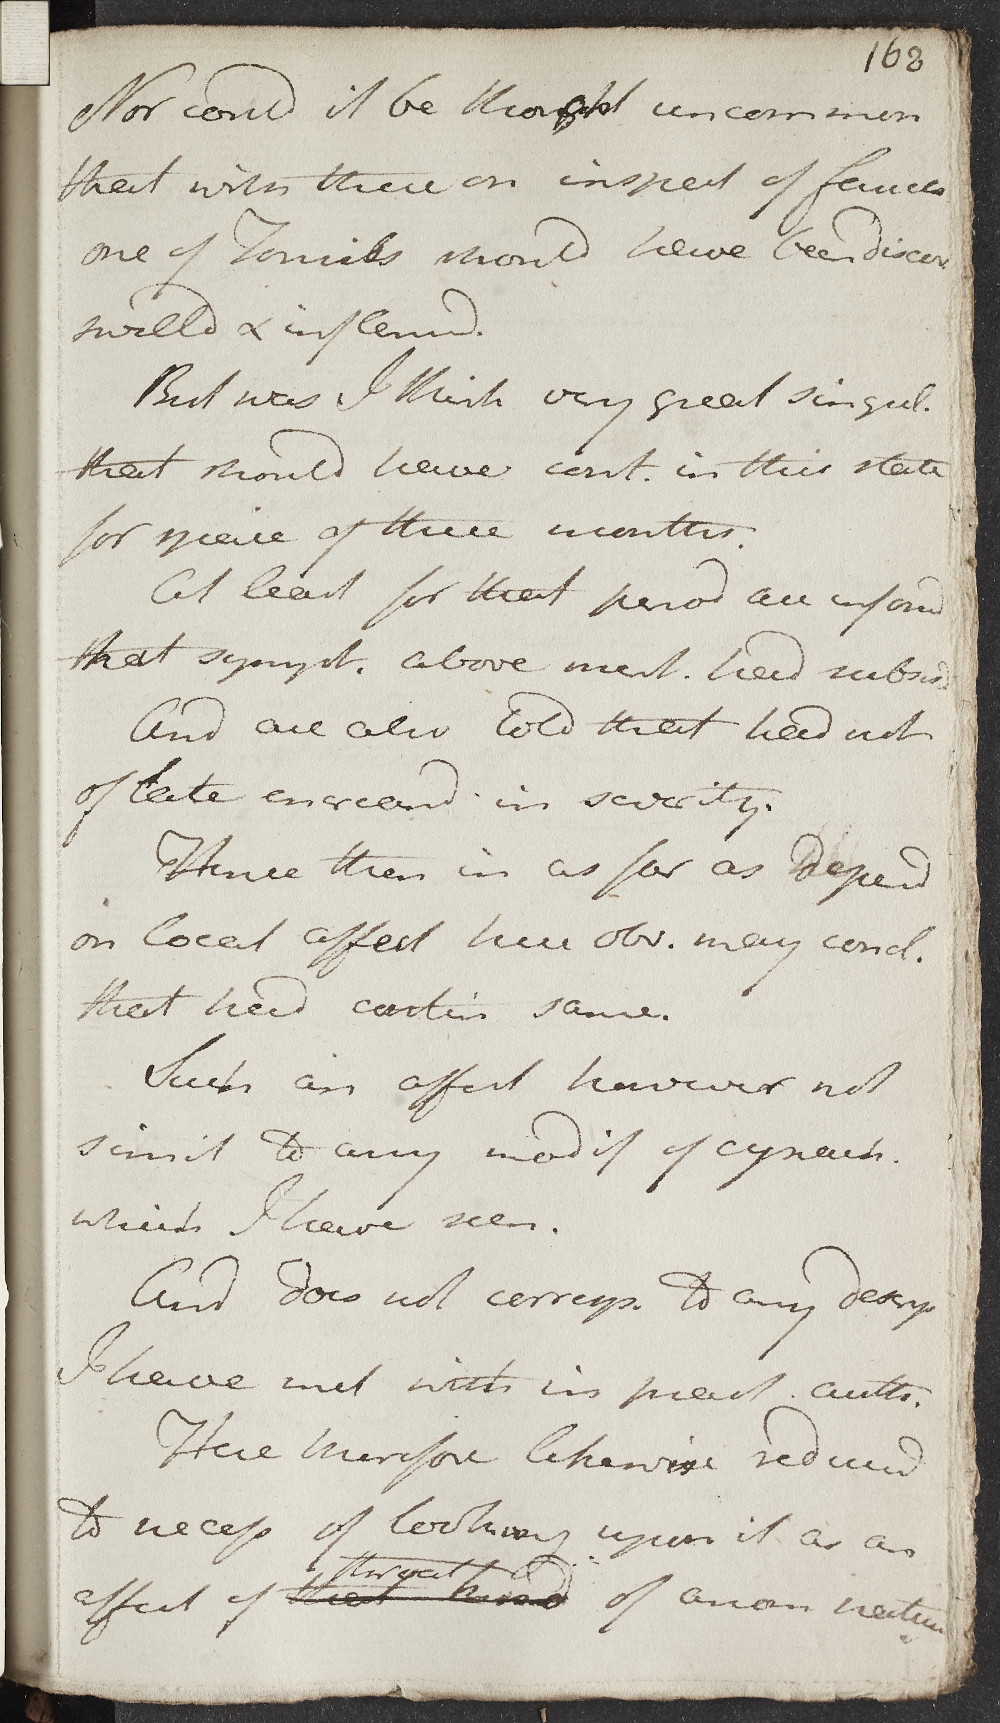 168
Nor could it be thought uncommon
that with these on inspect of fauces
one of Tonsils should have been discov
swelld & inflamd.
But was I think very great singul.
that should have cont. in this state
for space of three months.
At least for that period are informd
that sympt. above ment. had subsisd
And are also told that had not
of late encreasd in severity.
Hence then in as far as Depend
on local affect here obv. may concl.
that had contin same.
Such an affect however not
simil to any modif of cynanch.
which I have seen.
And does not corresp. to any descrip
I have met with in pract. auth.
Here therefore likewise reduced
to necess of looking upon it as an
throat
affect of that kind of anom nature